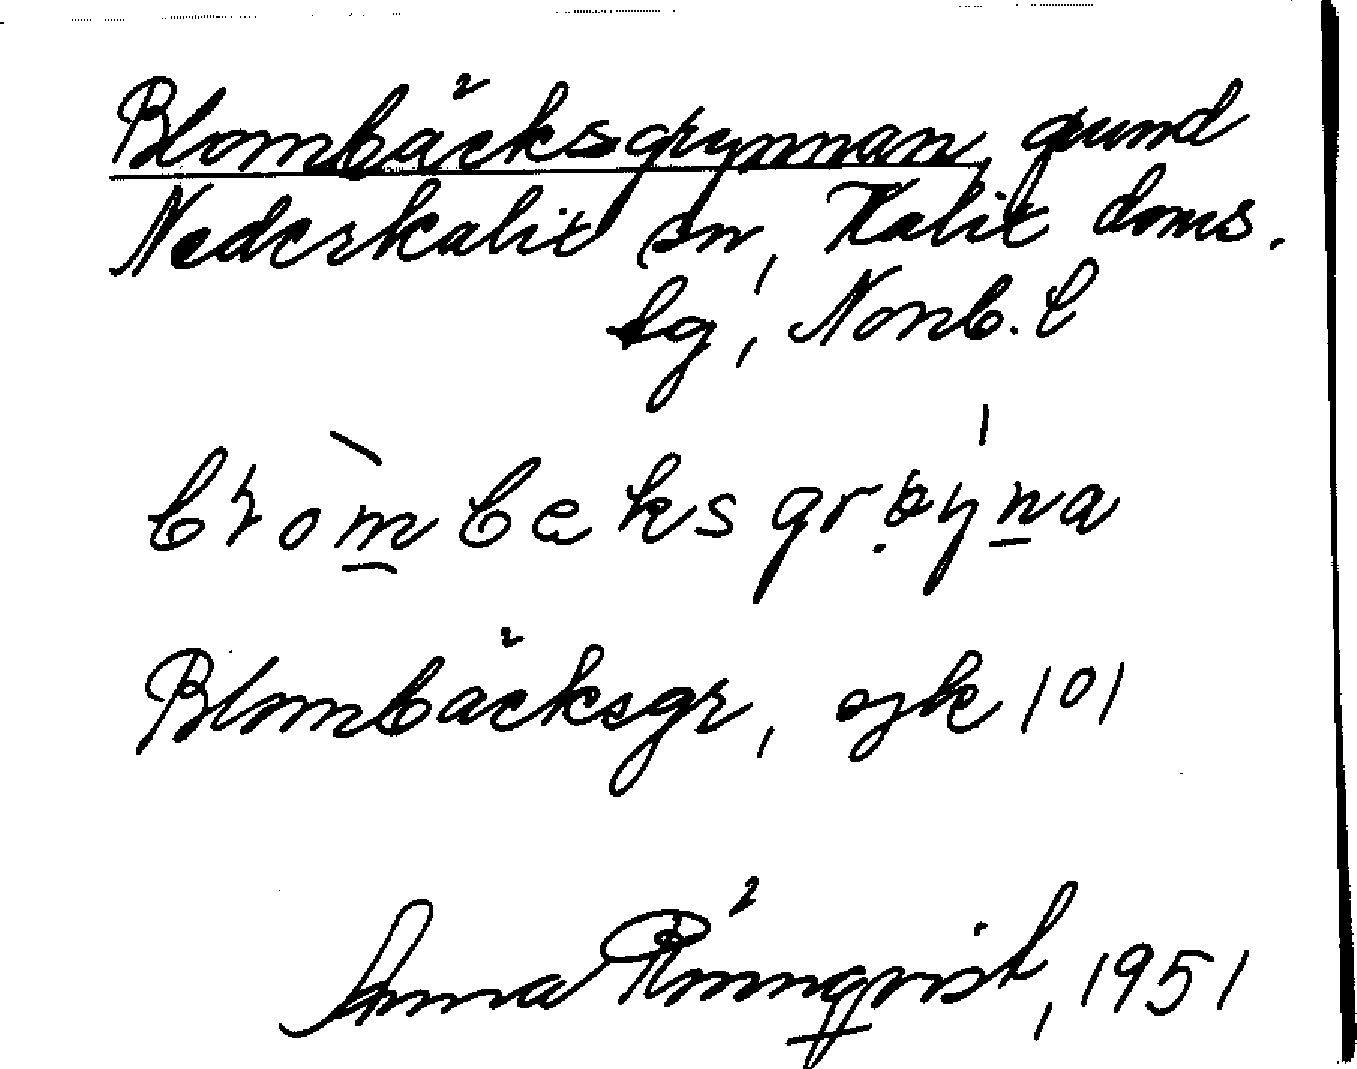 Blombäcksgrynnan, grund
Nederkalix sn, Kalix doms.
lg, Norrb. l
Blombäcksgr, ejk 101
Anna Rönnqvist, 1951